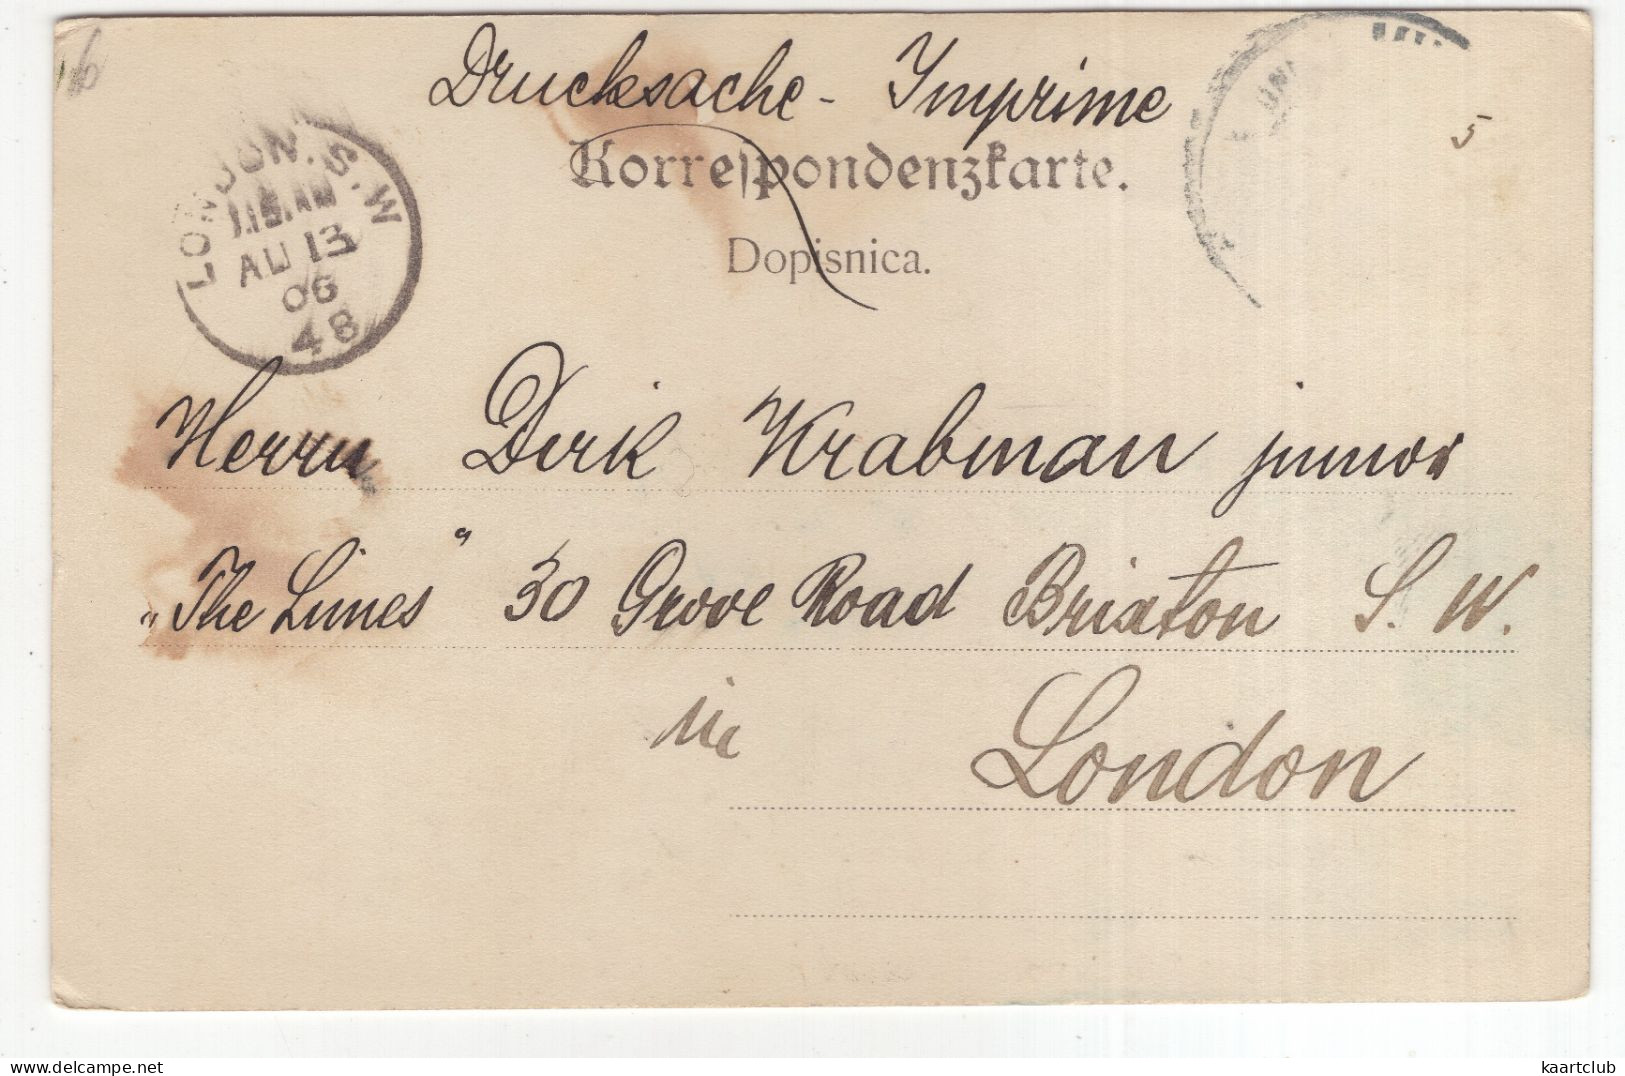 Drucksache - Imprime
Korrespondenzkarte.
Dopisnica.
5
LONDON. S.W
AU 13
06
48
Herrn Dirk Krabman junior
„The Limes“ 30 Grove Road Brixton S. W.
in London
kaartclub